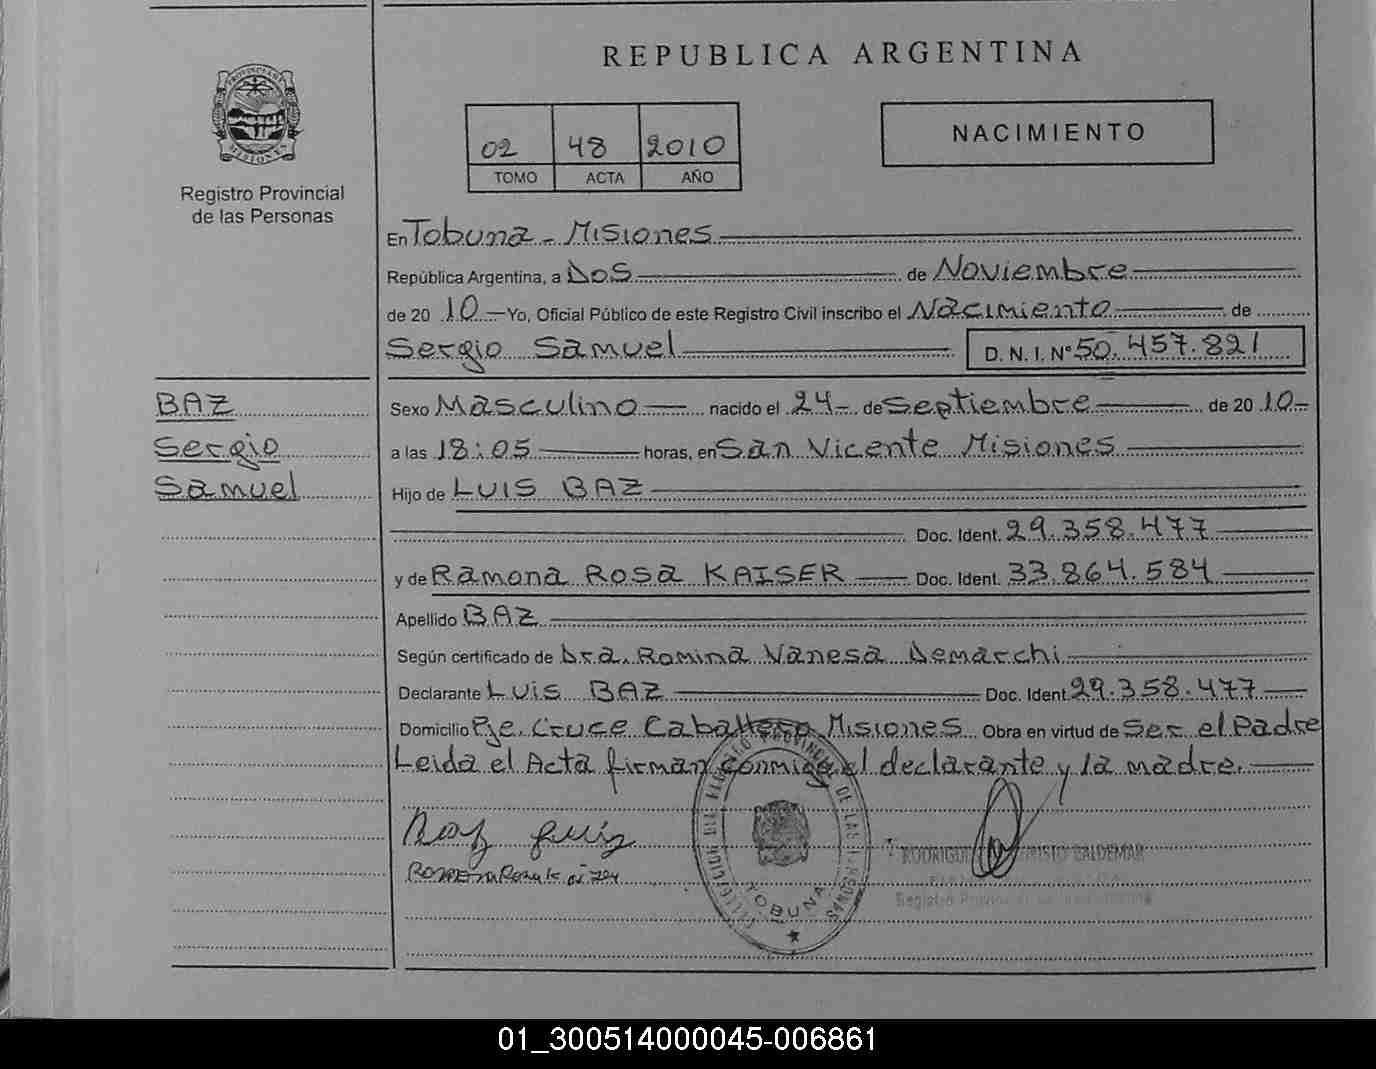 REPUBLICA ARGENTINA
02 48 2010
TOMO ACTA AÑO
NACIMIENTO
PROVINCIA DE MISIONES
Registro Provincial
de las Personas
En Tobuna - Misiones
República Argentina, a Dos de Noviembre
de 20 10 Yo, Oficial Público de este Registro Civil inscribo el Nacimiento de
Sergio Samuel D. N. I. Nº 50.457.821
BAZ
Sergio
Samuel
Sexo Masculino nacido el 24 de Septiembre de 20 10
a las 18:05 horas, en San Vicente Misiones
Hijo de LUIS BAZ
Doc. Ident. 29.358.477
y de Ramona Rosa KAISER Doc. Ident. 33.864.584
Apellido BAZ
Según certificado de Dra. Romina Vanesa Demarchi
Declarante Luis BAZ Doc. Ident. 29.358.477
Domicilio Pje. Cruce Caballero Misiones Obra en virtud de Ser el Padre
Leida el Acta firman conmigo el declarante y la madre.
Baz Luis
TOBUNA
01_300514000045-006861